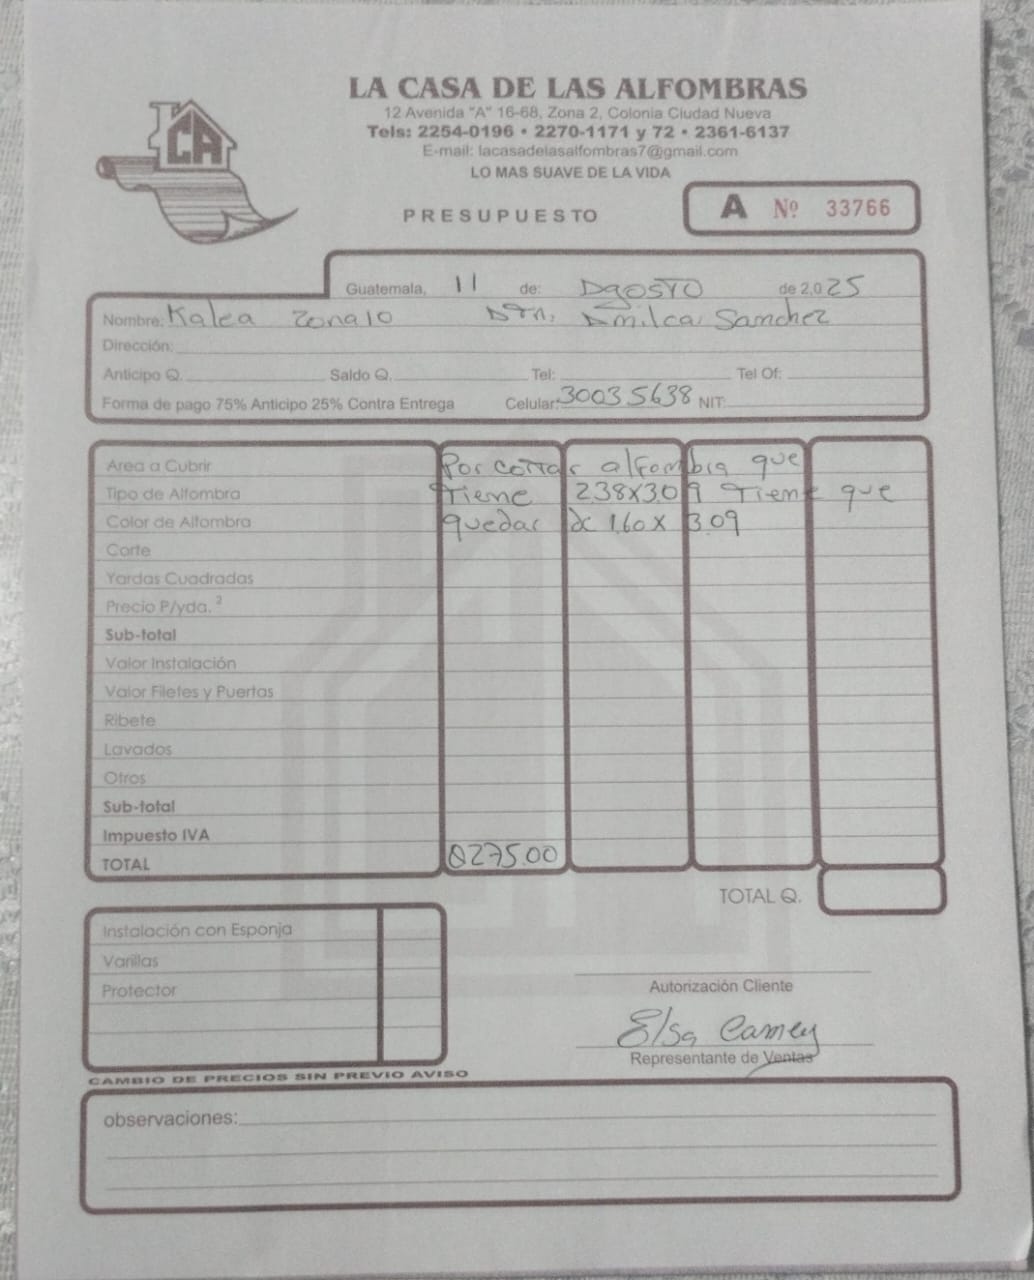 CA
LA CASA DE LAS ALFOMBRAS
12 Avenida "A" 16-68, Zona 2, Colonia Ciudad Nueva
Tels: 2254-0196 • 2270-1171 y 72 • 2361-6137
E-mail: lacasadelasalfombras7@gmail.com
LO MAS SUAVE DE LA VIDA
PRESUPUESTO
A Nº 33766
Guatemala, 11 de: Agosto de 2,025
Nombre: Kalea Zona 10 Atn, Amilcar Sanchez
Dirección:
Anticipo Q. Saldo Q. Tel: Tel Of:
Forma de pago 75% Anticipo 25% Contra Entrega Celular: 30035638 NIT:
Area a Cubrir Por cortar alfombra que
Tipo de Alfombra tiene 2.38X3.09 tiene que
Color de Alfombra quedar de 1.60 X 3.09
Corte
Yardas Cuadradas
Precio P/yda. 2
Sub-total
Valor Instalación
Valor Filetes y Puertas
Ribete
Lavados
Otros
Sub-total
Impuesto IVA
TOTAL Q275.00
TOTAL Q.
Instalación con Esponja
Varillas
Protector
Autorización Cliente
Elsa Camey
Representante de Ventas
CAMBIO DE PRECIOS SIN PREVIO AVISO
observaciones: